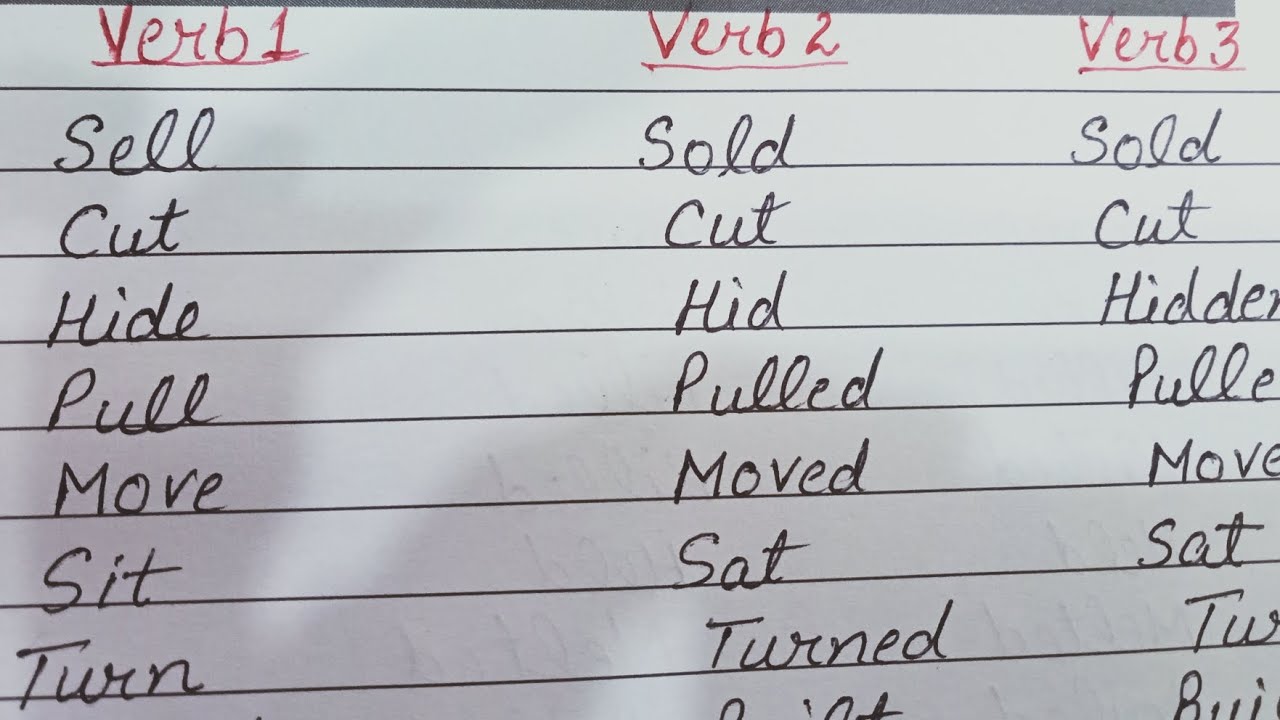 Verb 1 Verb 2 Verb 3
Sell Sold Sold
Cut Cut Cut
Hide Hid Hidden
Pull Pulled Pulle
Move Moved Move
Sit Sat Sat
Turn Turned Tur